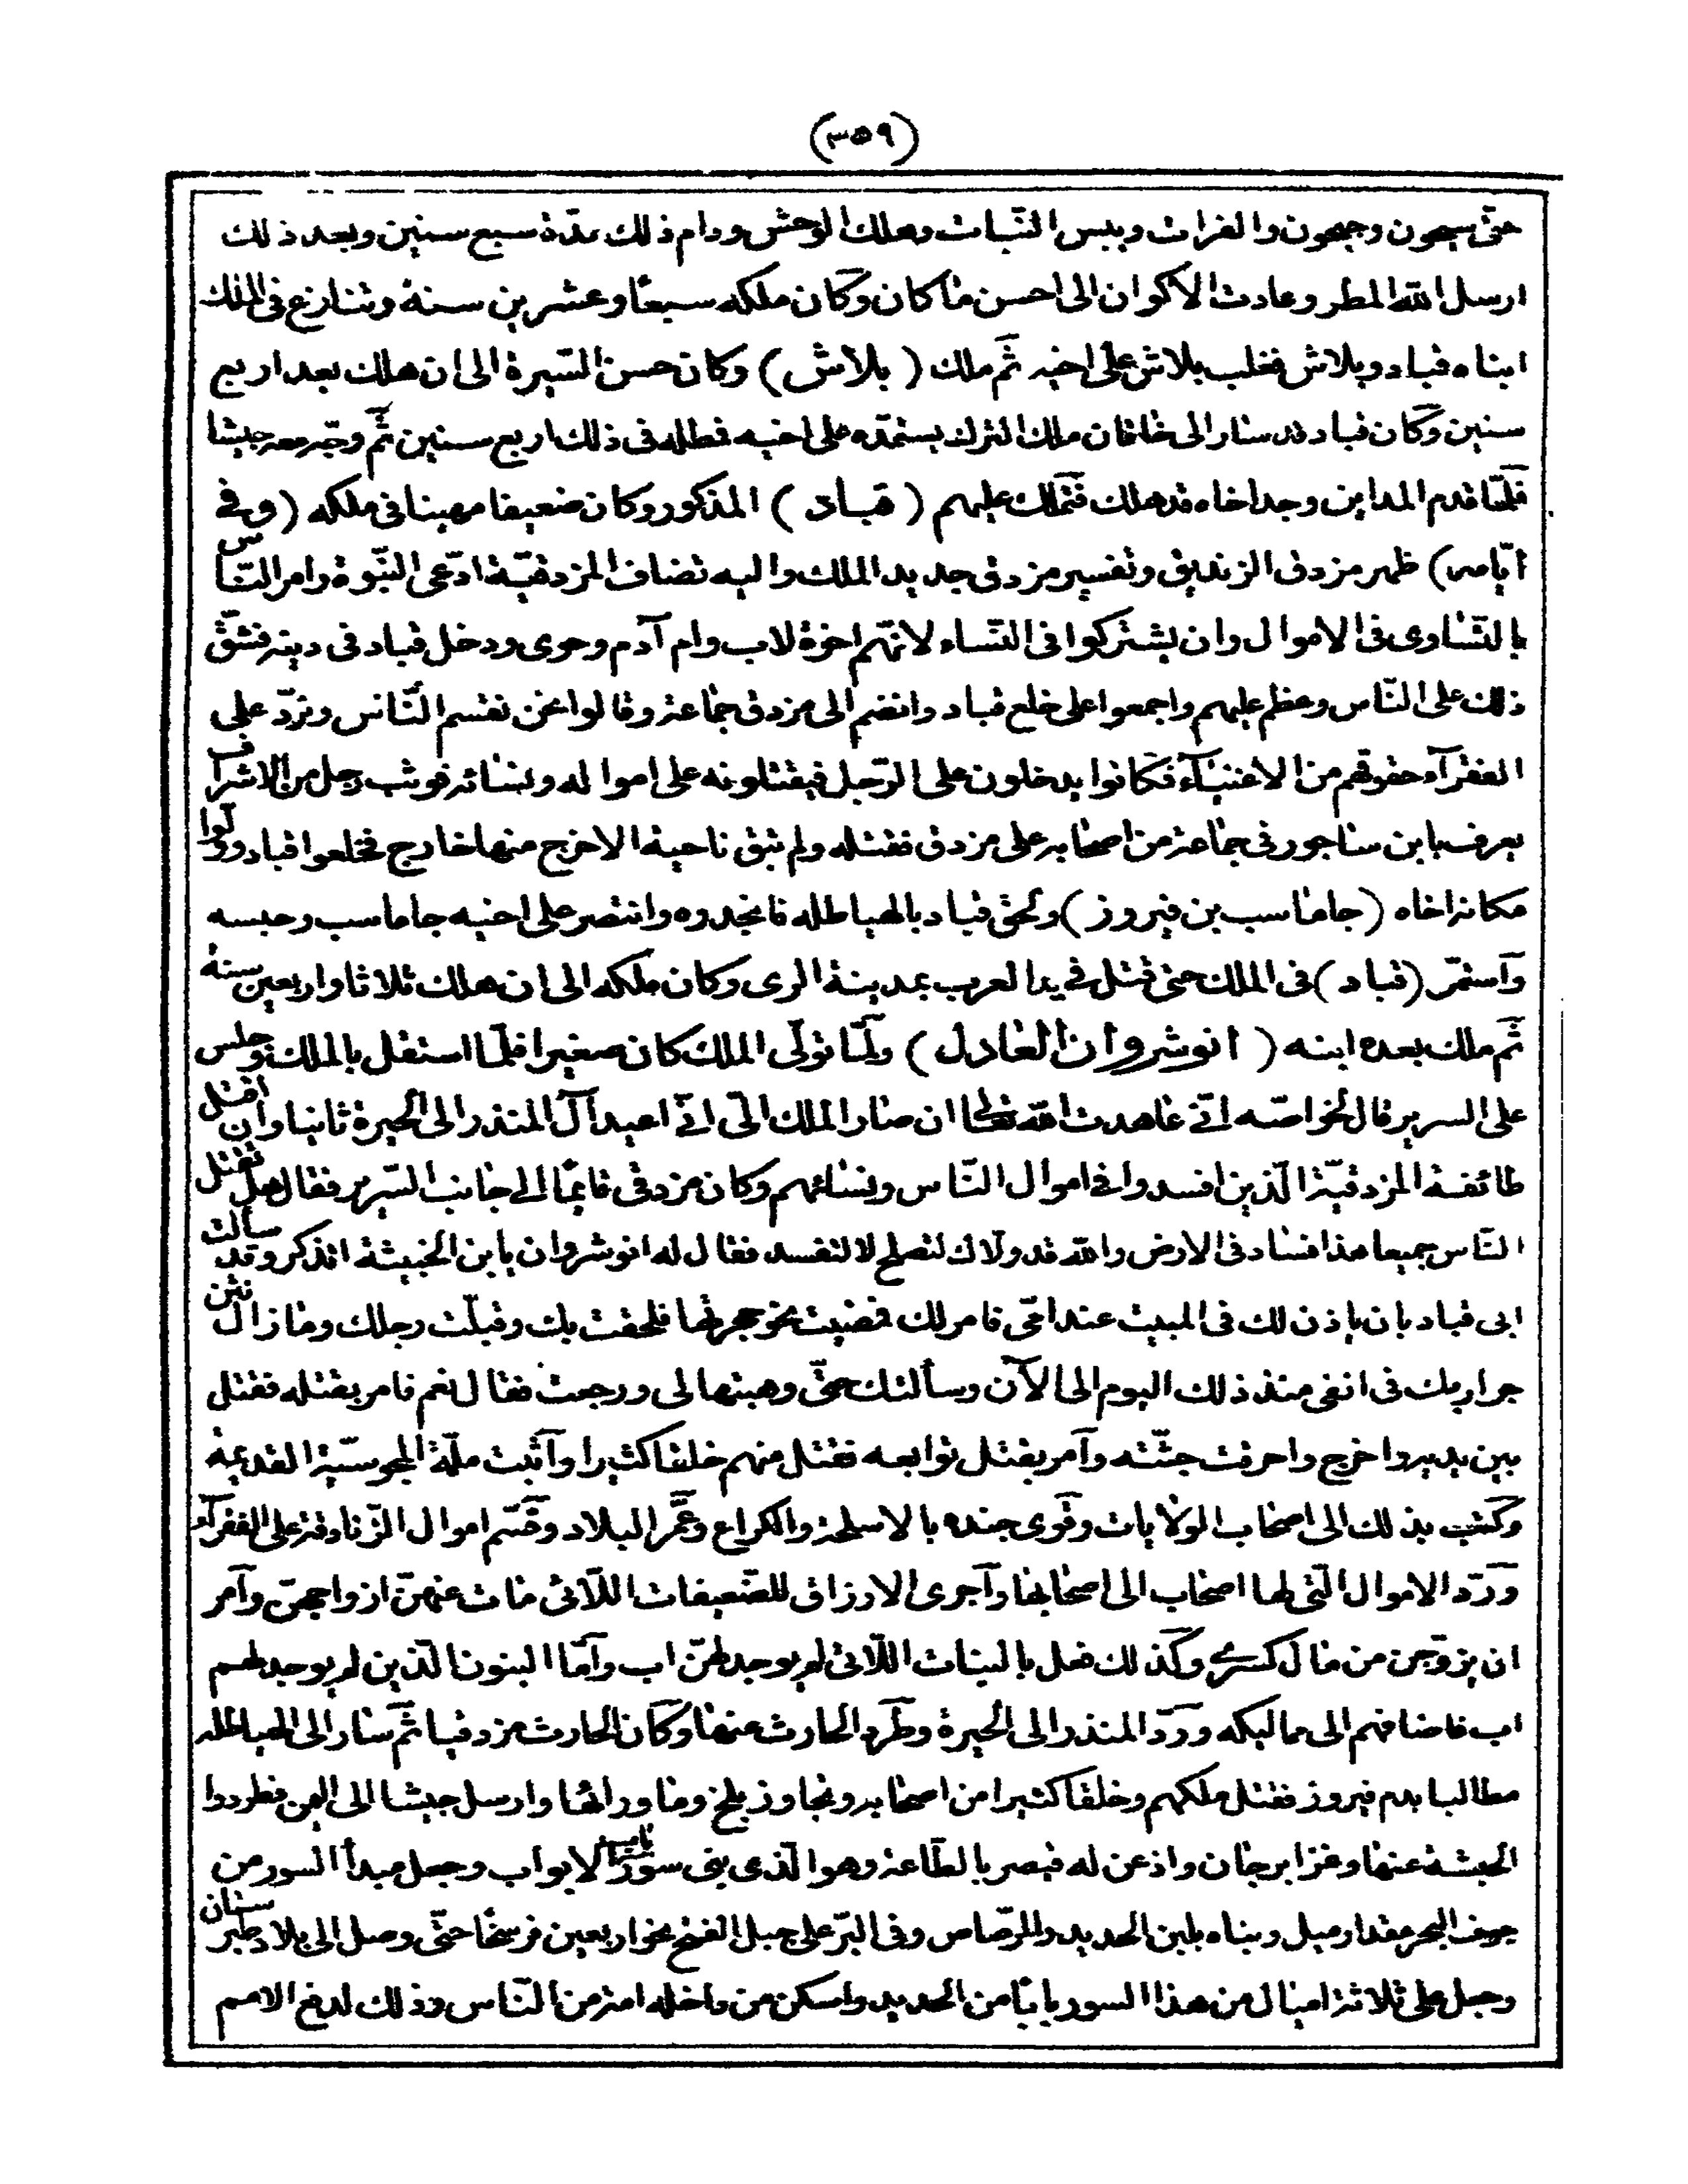 (٣٥٩)
حتّى سيحون وجيحون والفرات ويبس النّبات وهلك الوحش ودام ذلك مدّة سبع سنين وبعد ذلك
ارسل الله المطر وعادت الاكوان الى احسن ما كان وكان ملكه سبعًا وعشرين سنة وتنازع فى الملك
ابناه قباد وبلاش فغلب بلاش على اخيه ثمّ ملك ( بلاش ) وكان حسن السّيرة الى ان هلك بعد اربع
سنين وكان قباد قد سار الى خاقان ملك الترك يستمدّه على اخيه فمطله فى ذلك اربع سنين ثمّ وجّه معه جيشا
فلمّا قدم المداين وجد اخاه قد هلك فتملك عليهم ( قباد ) المذكور وكان ضعيفا مهينا فى ملكه (وفى
ايّامه) ظهر مزدق الزنديق وتفسير مزدق جديد الملك واليه تضاف المزدقيّة ادّعى النّبوة وامر النّاس
بالتّساوى فى الاموال وان يشتركوا فى النّساء لانّهم اخوة لاب وام آدم وحوى ودخل قباد فى دينه فشقّ
ذلك على النّاس وعظم عليهم واجمعوا على خلع قباد وانضم الى مزدق جماعة وقالوا نحن نقسم النّاس ونردّ على
الفقرآء حقوقهم من الاغنيآء فكانوا يدخلون على الرّجل فيقتلونه على امواله ونسائه فوثب رجل من الاشراف
يعرف بابن ساجور فى جماعة من اصحابه على مزدق فقتله ولم تبق ناحية الا خرج منها خارج فخلعوا قباد وولّوا
مكانه اخاه (جاماسب بن فيروز) ولحق قباد بالهياطله فانجدوه وانتصر على اخيه جاماسب وحبسه
وآستمرّ (قباد) فى الملك حتى قتل فى يد العرب بمدينة الرى وكان ملكه الى ان هلك ثلاثا واربعين سنة
ثمّ ملك بعده ابنه ( انوشروان العادل ) ولمّا تولّى الملك كان صغيرا فلمّا استقل بالملك وجلس
على السرير قال لخواصّه انّى عاهدت الله تعالى ان صار الملك الىّ انّى اعيد آل المنذر الى الحيرة ثانيا وان اقتل
طائفة المزدقيّة الّذين افسدوا فى اموال النّاس ونسائهم وكان مزدق قايمًا الى جانب السّرير فقال هل تقتل
النّاس جميعا هذا فساد فى الارض والله قد ولاك لتصلح لا لتفسد فقال له انوشروان يابن الخبيثة اتذكر وقد سألت
ابى قباد بان ياذن لك فى المبيت عند امّى فامر لك فمضيت نحو حجرتها فلحقت بك وقبلّت رجلك وما زال نتن
جواربك فى انفى منذ ذلك اليوم الى الآن وسألتك حتّى وهبتها لى ورجعت فقال نعم فامر بقتله فقتل
بين يديه واخرج واحرقت جثّته وآمر بقتل توابعه فقتل منهم خلقا كثيرا وآثبت ملّة المجوسيّة القديمة
وكتب بذلك الى اصحاب الولايات وقوى جنده بالاسلحة والكراع وعمّر البلاد وقسّم اموال الزّنادقة على الفقرآء
وردّ الاموال الّتى لها اصحاب الى اصحابها وآجرى الارزاق للضّعيفات اللّاتى مات عنهنّ ازواجهنّ وآمر
ان يزوّجن من مال كسرى وكذلك فعل بالبنات اللّاتى لم يوجد لهنّ اب وآمّا البنون الّذين لم يوجد لهم
اب فاضافهم الى مماليكه وردّ المنذر الى الحيرة وطرد الحارث عنها وكان الحارث مزدقيا ثمّ سار الى الهياطله
مطالبا بدم فيروز فقتل ملكهم وخلقا كثيرا من اصحابه وتجاوز بلخ وما ورائها وارسل جيشا الى اليمن فطردوا
الحبشة عنها وغزا برجان واذعن له قيصر بالطّاعة وهو الّذى بنى سور باب الابواب وجعل مبدأ السور من
جوف البحر مقدار ميل وبناه بلبن الحديد والرّصاص وفى البرّ على جبل الفتح نحو اربعين فرسخًا حتّى وصل الى بلاد طبرستان
وجعل على ثلاثة اميال من هذا السور بابًا من الحديد واسكن من داخله امة من النّاس وذلك لدفع الامم